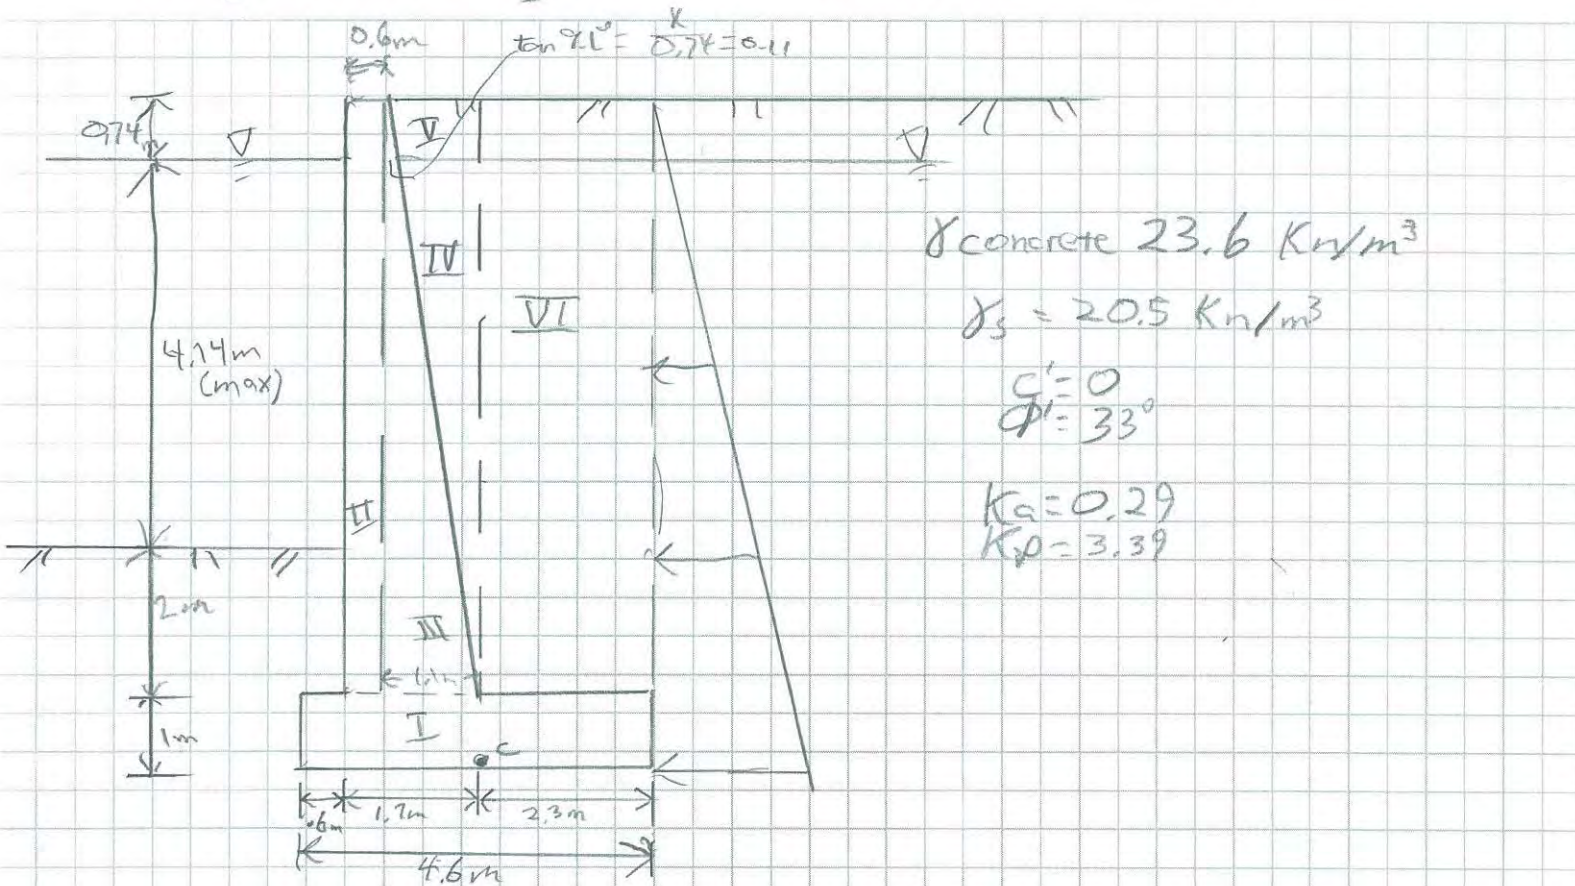 0.6m
tan 9.1° = x / 0.74 = 0.11
0.74 m
V
IV
VI
4.14m
(max)
II
2m
III
1.1m
I
1m
c
.6m 1.7m 2.3m
4.6m
γconcrete 23.6 Kn/m³
γs = 20.5 Kn/m³
c' = 0
Φ' = 33°
Ka = 0.29
Kp = 3.39